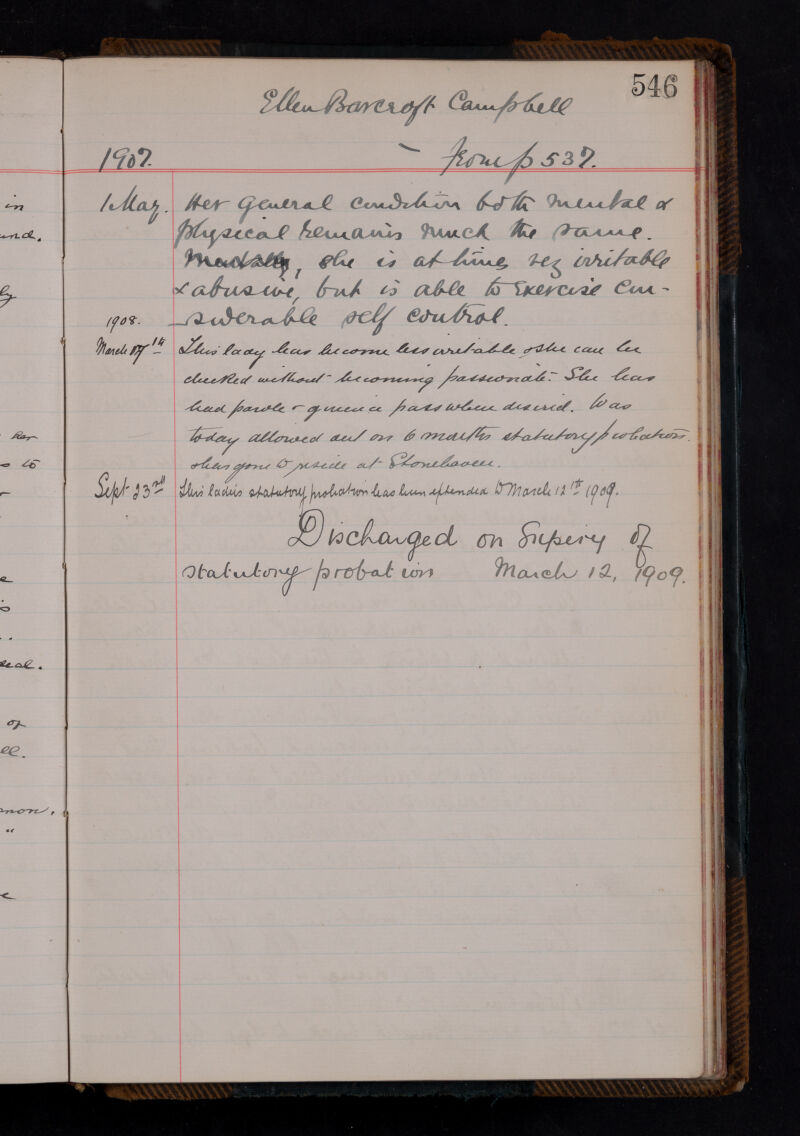 546
Ellen Barcroft Campbell
1907. From p 537.
1 May. Her general condition both mental &
physical remains much the same.
she is at times very irritable
& abusive, but is able to exercise con-
siderable self control.
1908.
March 17th This lady has become less irritable & she can be
checked without becoming passionate. She has
had parole & given a pass when desired. Was
today allowed out on 6 months statutory probation.
& has gone to reside at Stonehaven.
Sept 23rd This ladies statutory probation has been extended to March 12th 1909.
Discharged on expiry of
statutory probation March 12, 1909.
in
and.
ly
her
to
e
is
deal.
of
ell.
"
e